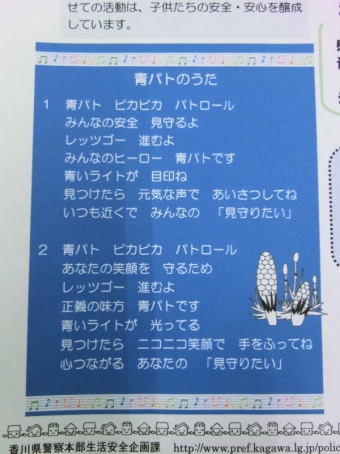 せての活動は、子供たちの安全・安心を醸成
しています。
青パトのうた
1 青パト ピカピカ パトロール
みんなの安全 見守るよ
レッツゴー 進むよ
みんなのヒーロー 青パトです
青いライトが 目印ね
見つけたら 元気な声で あいさつしてね
いつも近くで みんなの 「見守りたい」
2 青パト ピカピカ パトロール
あなたの笑顔を 守るため
レッツゴー 進むよ
正義の味方 青パトです
青いライトが 光ってる
見つけたら ニコニコ笑顔で 手をふってね
心つながる あなたの 「見守りたい」
香川県警察本部生活安全企画課 http://www.pref.kagawa.lg.jp/polic